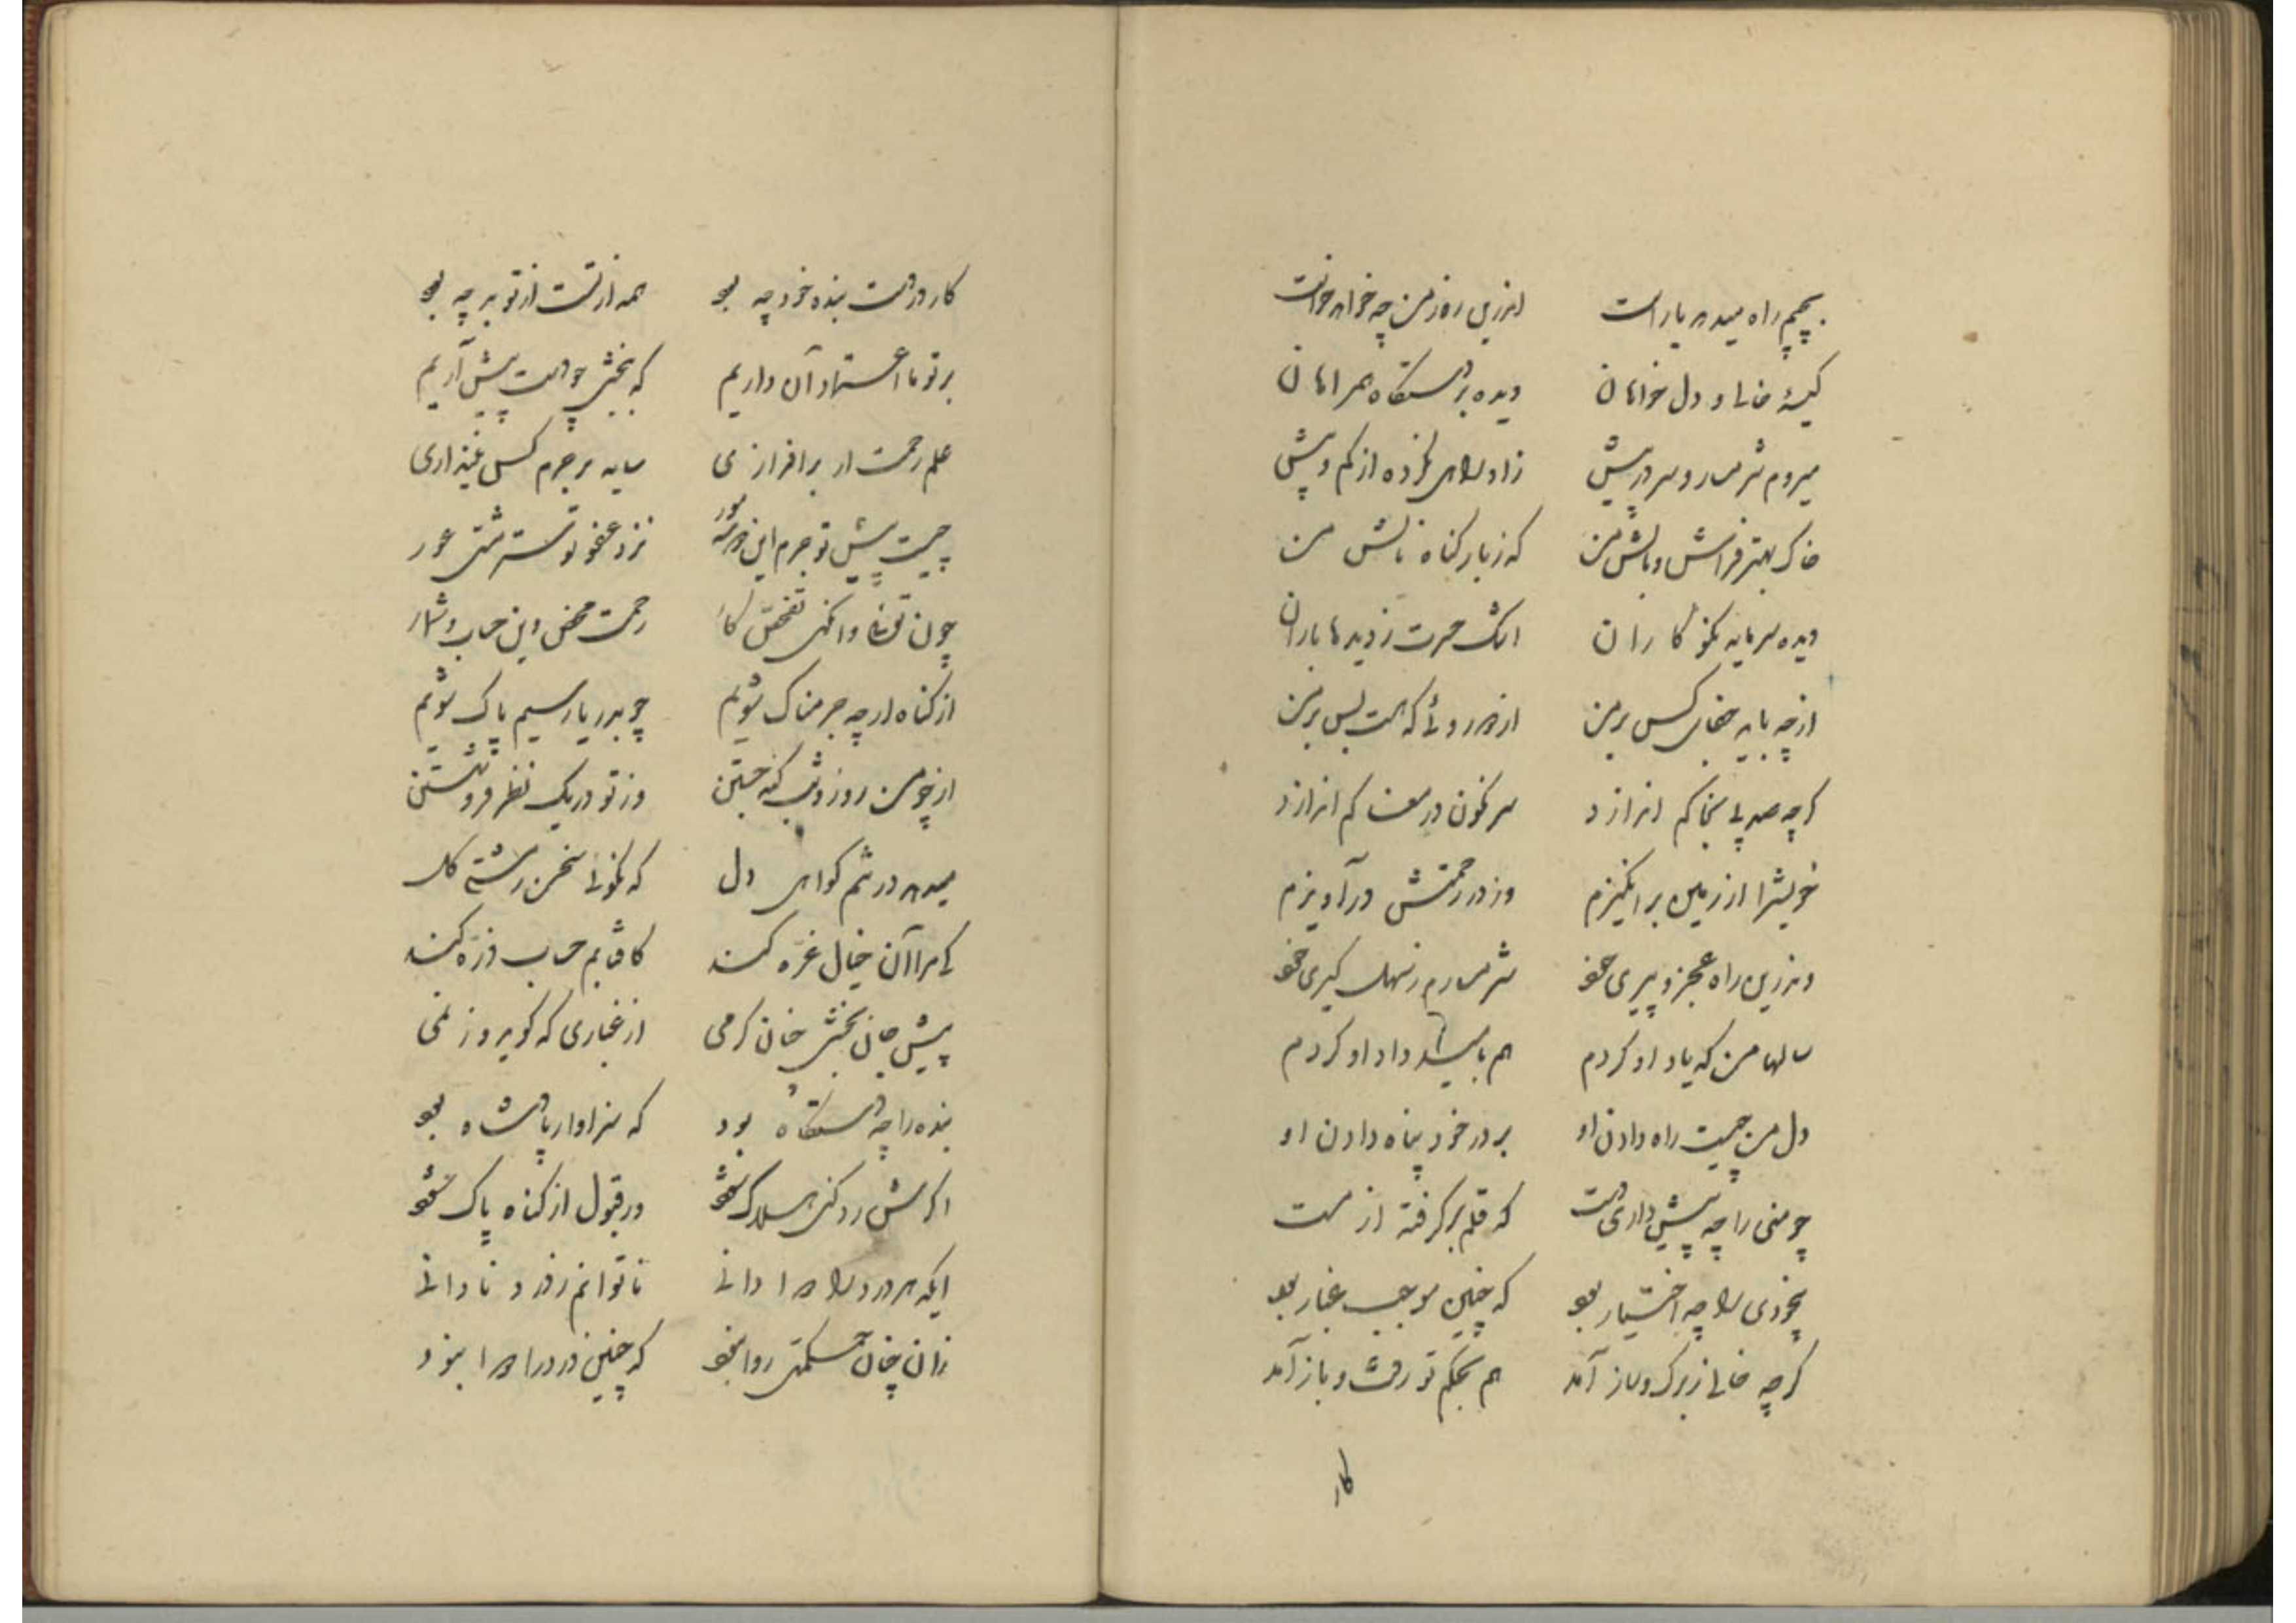 بچم راه میدهد یار است اندرین روز من چه خواهد خواست
کیسهٔ خالی و دل خواهان دیده بر دستگاه همراهان
میروم شرمسار و سر در پیش زاد راهی نکرده از کم و بیش
خاک بهتر فراش و بالش من که ز بار گناه نالش من
دیده سرمایه نکوکاران اشک حسرت ز دیدها باران
از چه باید جفای کس بر من از در روئی که هست بس بر من
گرچه صد پی بخاکم اندازد سرنگون در مغاکم اندازد
خویش را از زمین برانگیزم وز در رحمتش درآویزم
وندرین راه عجز و پیری خود شرمسارم ز سهل گیری خود
سالها من که یاد او کردم هم بامید داد او کردم
دل من چیست راه دادن او بر در خود پناه دادن او
چو منی را چه پیش داری دست که قلم برگرفته از مست
بیخودی را چه اختیار بود که چنین موجب غبار بود
گرچه خالی ز برگ و ساز آمد هم بحکم تو رفت و باز آمد
کار
کار در دست بنده خود چه بود همه از تست از تو بد چه بود
بر تو ما اعتماد آن داریم که ببخشی چو دست پیش آریم
علم رحمت ار برافرازی سایه بر جرم کس نیندازی
چیست پیش تو جرم این نزد عفو تو مشتی عور
چون توئی وانگهی تفحص کار رحمت محض و این حساب و شمار
از گناه ار چه جرمناک شویم چو بدریا رسیم پاک شویم
از چو من روز و شب گنه جستن وز تو در یک نظر فرو شستن
میدهد در شبم گواهی دل که نکوئی سخن سرشتی گل
کی مرا آن خیال غرّه کند کافتابم حساب ذرّه کند
پیش جان بخش خان کرمی از غباری که گوید و ز نمی
بنده را چه دستگاه بود که سزاوار پادشاه بود
اگرش رد کنی هلاک شود ور قبول از گناه پاک شود
ایکه هر درد را دوا دانی ناتوانم ز درد نادانی
زان چنان حکمتی روا نبود که چنین درد را دوا نبود